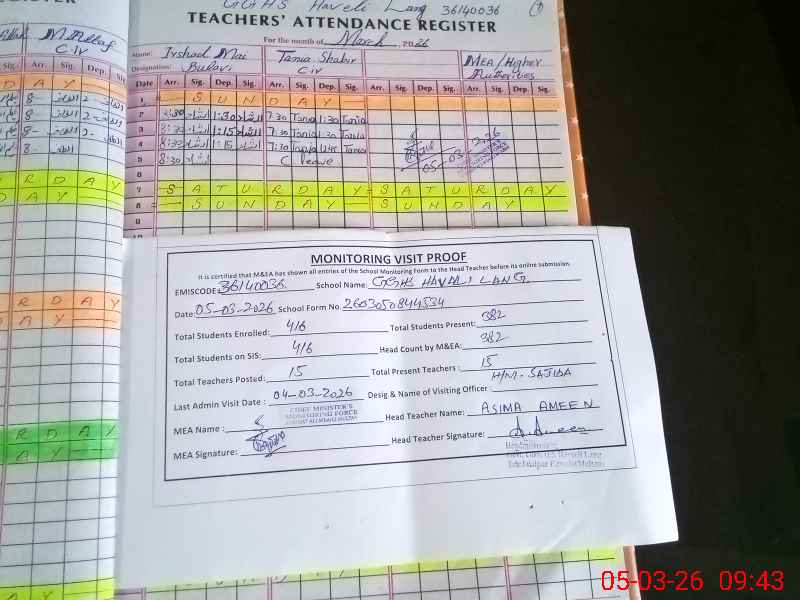 GGHS Haveli Lang 36140036
TEACHERS' ATTENDANCE REGISTER
For the month of March, 2026
Name: Irshad Mai
Tania Shabir
MEA/Higher
Designation:
C-IV
Date Arr. Sig. Dep. Sig. Arr. Sig. Dep. Sig. Arr. Sig. Dep. Sig. Arr. Sig. Dep. Sig.
1 S U N D A Y
2 8:30 ارشاد 1:30 ارشاد 7:30 Tania 1:30 Tania
3 8:30 ارشاد 1:15 ارشاد 7:30 Tania 1:30 Tania
4 8:30 ارشاد 1:15 ارشاد 7:30 Tania 1:45 Tania
5 8:30 ارشاد C leave
05-03-2026
R D A Y
7 S A T U R D A Y S A T U R D A Y
D A Y
8 S U N D A Y S U N D A Y
9
MONITORING VISIT PROOF
It is certified that M&EA has shown all entries of the School Monitoring Form to the Head Teacher before its online submission.
EMISCODE: 36140036 School Name: GGHS HAVALI LANG
Date: 05-03-2026 School Form No. 2603050844534
Total Students Enrolled: 416 Total Students Present: 382
Total Students on SIS: 416 Head Count by M&EA: 382
Total Teachers Posted: 15 Total Present Teachers: 15
Last Admin Visit Date: 04-03-2026 Desig & Name of Visiting Officer: H/M. SAJIDA
CHIEF MINISTER'S
MONITORING FORCE
MEA Name: Head Teacher Name: ASIMA AMEEN
MEA Signature: Head Teacher Signature: A.Ameen
05-03-26 09:43